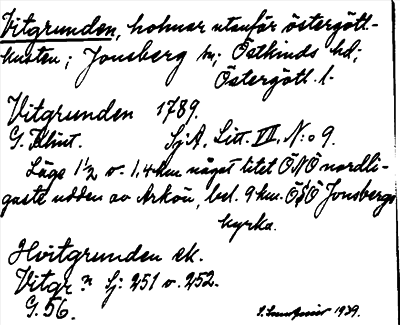 Vitgrunden, holmar utanför östergötl.-
kusten; Jonsberg sn; Östkinds hd;
Östergötl. l.
Vitgrunden 1789.
G. Klint. SjA, Litt. VI, N:o 9.
Läge 1/2 o. 1,4 km. något litet ÖNÖ nordli-
gaste udden av Arkön, bel. 9 km. ÖSÖ Jonsbergs
kyrka.
Hvitgrunden ek.
Vitgr. n Sj: 251 o. 252.
G. 56.
1939.